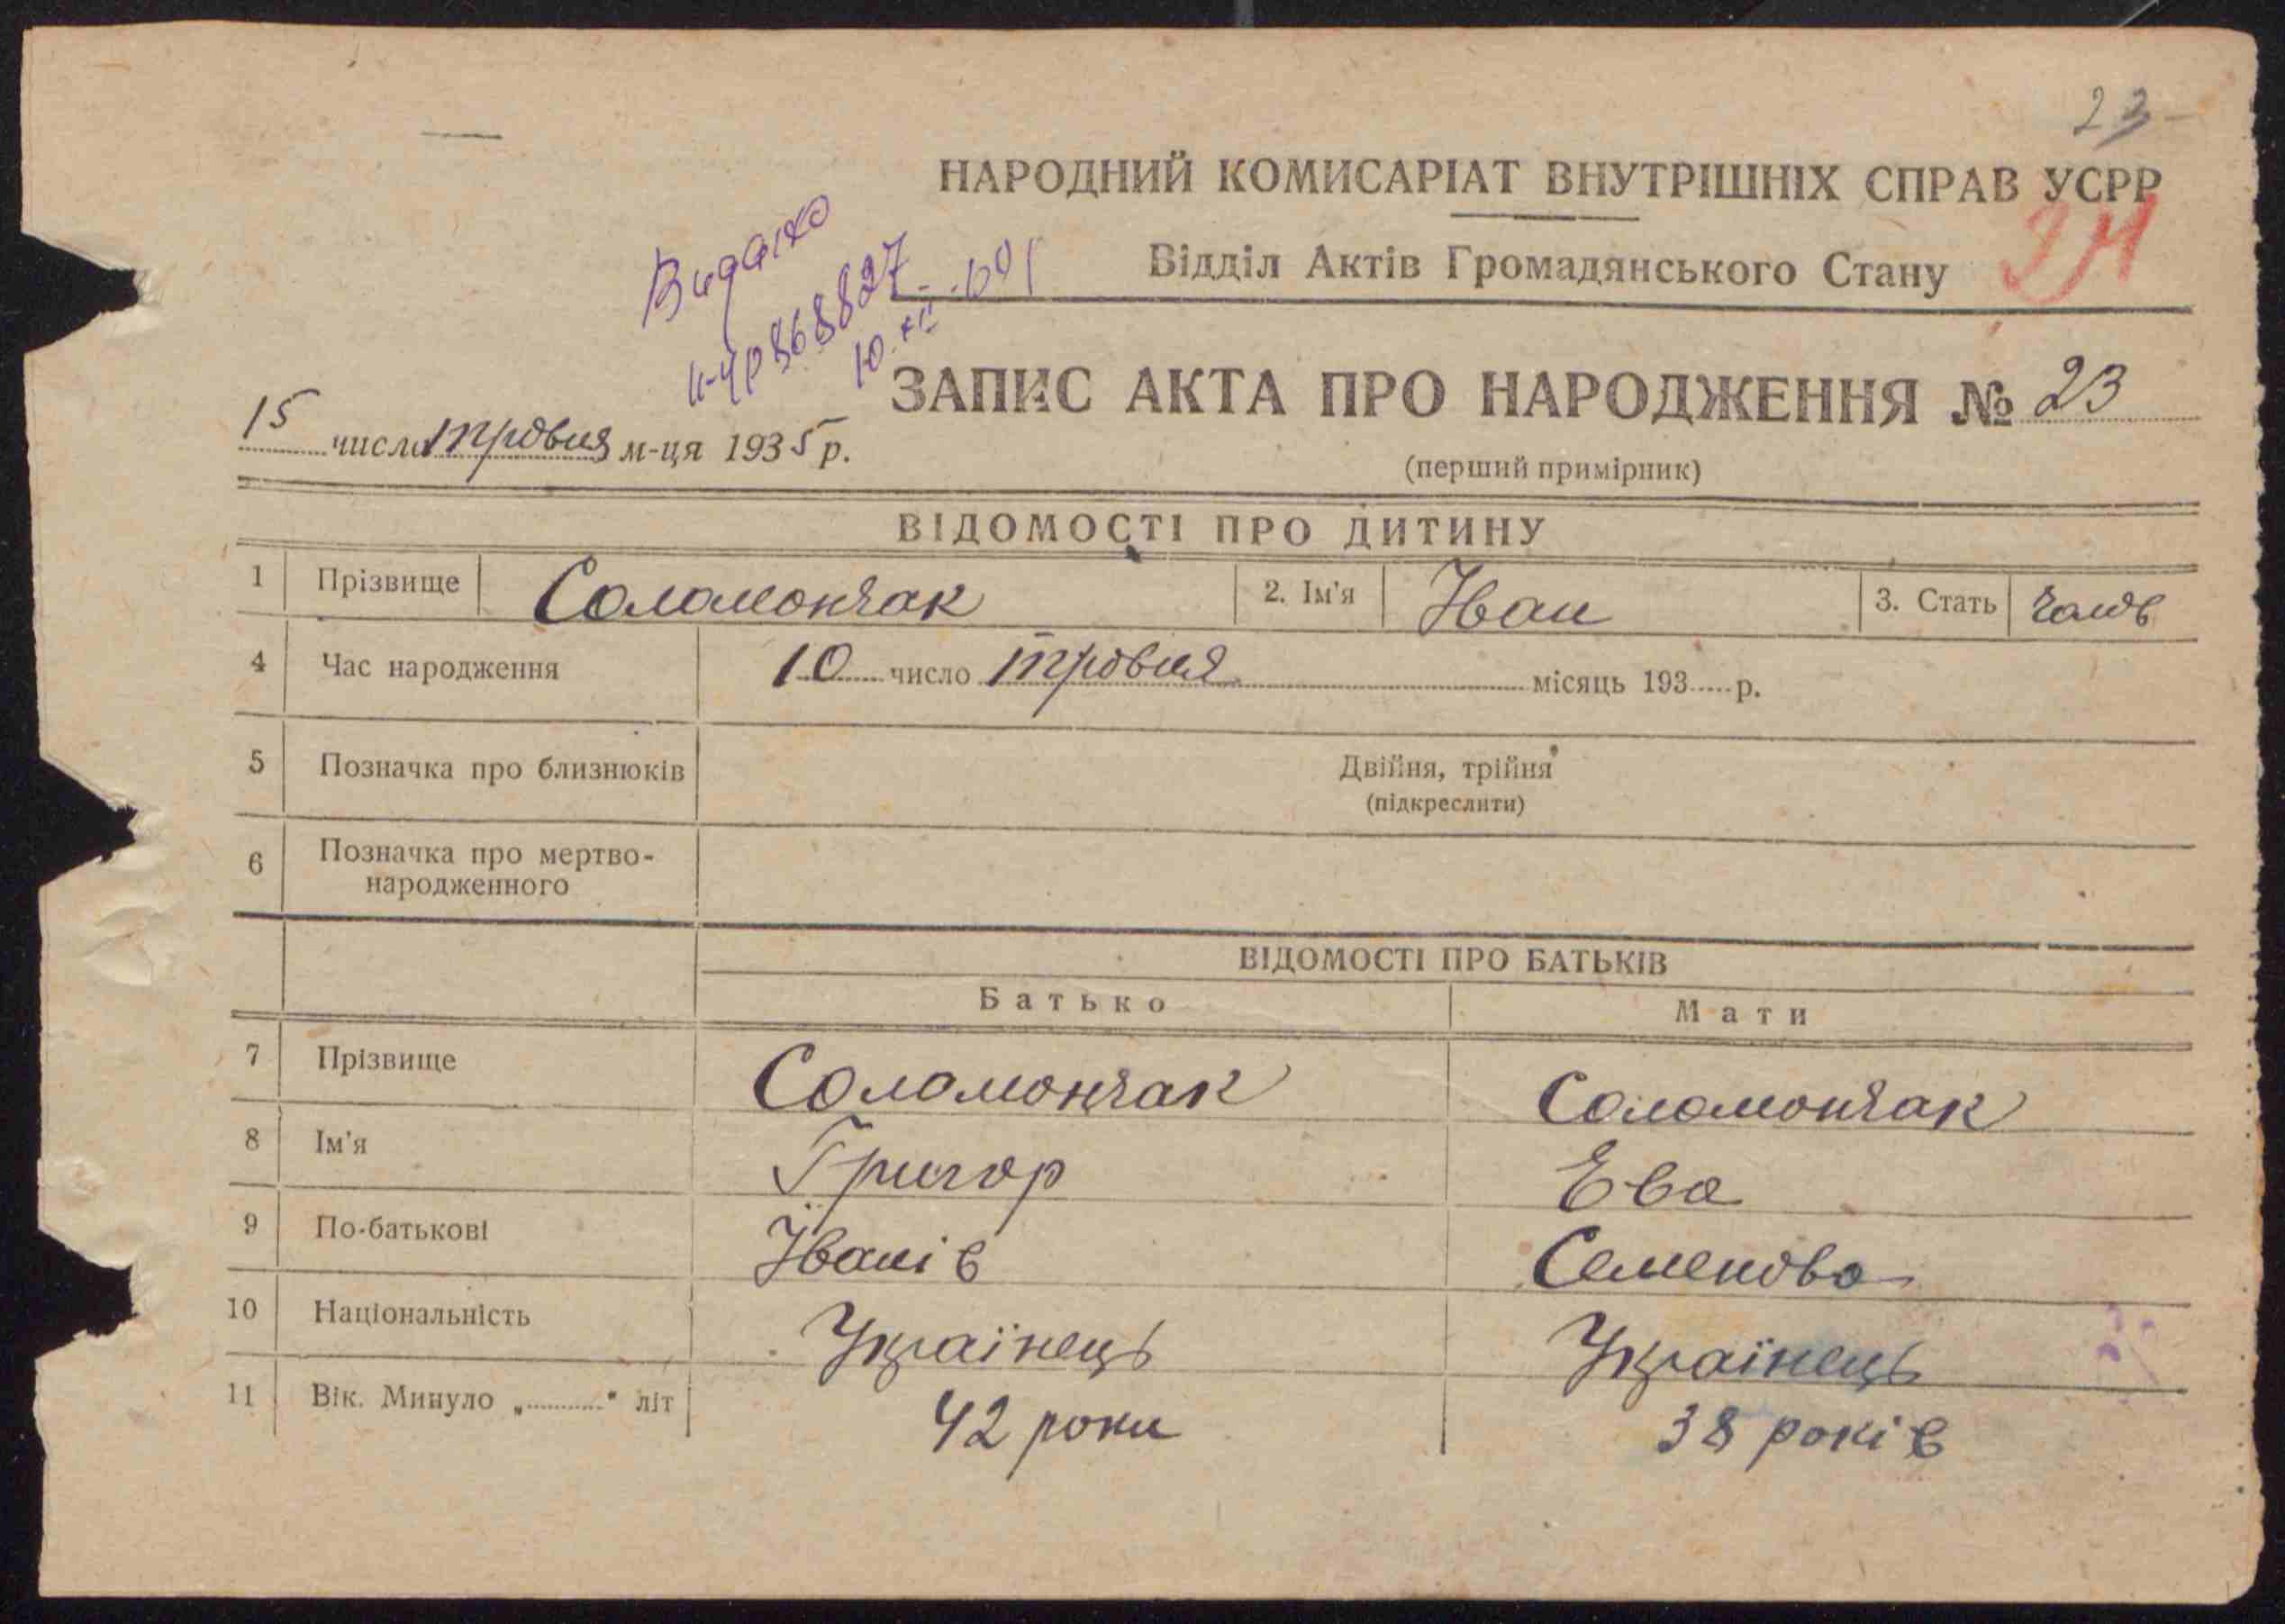 23
НАРОДНИЙ КОМИСАРІАТ ВНУТРІШНІХ СПРАВ УСРР
Відділ Актів Громадянського Стану
Видано
868827
10
ЗАПИС АКТА ПРО НАРОДЖЕННЯ № 23
15 числа травня м-ця 1935 р.
(перший примірник)
ВІДОМОСТІ ПРО ДИТИНУ
1 Прізвище Соломончак 2. Ім'я Іван 3. Стать чолов
4 Час народження 10 число травня місяць 193 р.
5 Позначка про близнюків Двійня, трійня
(підкреслити)
6 Позначка про мертво-
народженного
ВІДОМОСТІ ПРО БАТЬКІВ
Батько Мати
7 Прізвище Соломончак Соломончак
8 Ім'я Григор Ева
9 По-батькові Іванів Семенова
10 Національність Українець Українець
11 Вік. Минуло „..........“ літ 42 роки 38 років